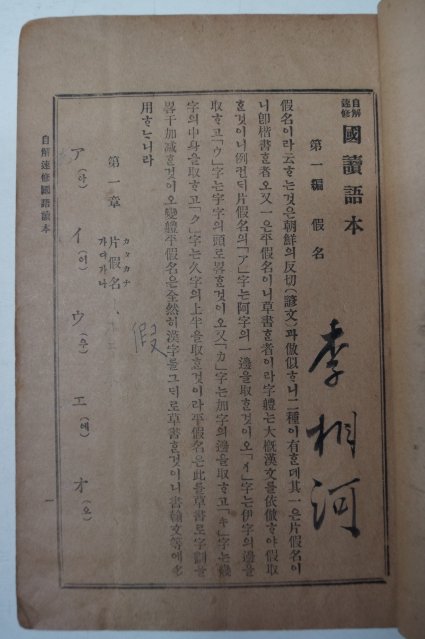 自解速修 國語讀本
第一編 假名
假名이라云ᄒᆞᄂᆞᆫ것은朝鮮의反切(諺文)과倣似ᄒᆞ니二種이有ᄒᆞᆫ데其一은片假名이
니卽楷書ᄒᆞᆫ者오又一은平假名이니草書ᄒᆞᆫ者이라字軆ᄂᆞᆫ大槪漢文를依倣ᄒᆞ야假取
ᄒᆞᆫ것이니例컨ᄃᆡ片假名의「ア」字ᄂᆞᆫ阿字의一邊을取ᄒᆞᆫ것이오「イ」字ᄂᆞᆫ伊字의邊을
取ᄒᆞ고「ウ」字ᄂᆞᆫ宇字의頭로畧ᄒᆞᆫ것이오又「カ」字ᄂᆞᆫ加字의邊을取ᄒᆞ고「キ」字ᄂᆞᆫ幾
字의中身을取ᄒᆞ고「ク」字ᄂᆞᆫ久字의上半을取ᄒᆞᆫ것이라平假名은此를草書로字劃을
畧干加减ᄒᆞᆫ것이오變軆平假名은全然히漢字를그ᄃᆡ로草書ᄒᆞᆫ것이니書翰文等에多
用ᄒᆞᄂᆞ니라
第一章 片假名 カタカナ 가다가나
ア(아) イ(이) ウ(우) エ(에) オ(오)
自解速修國語讀本
一
李相河
假